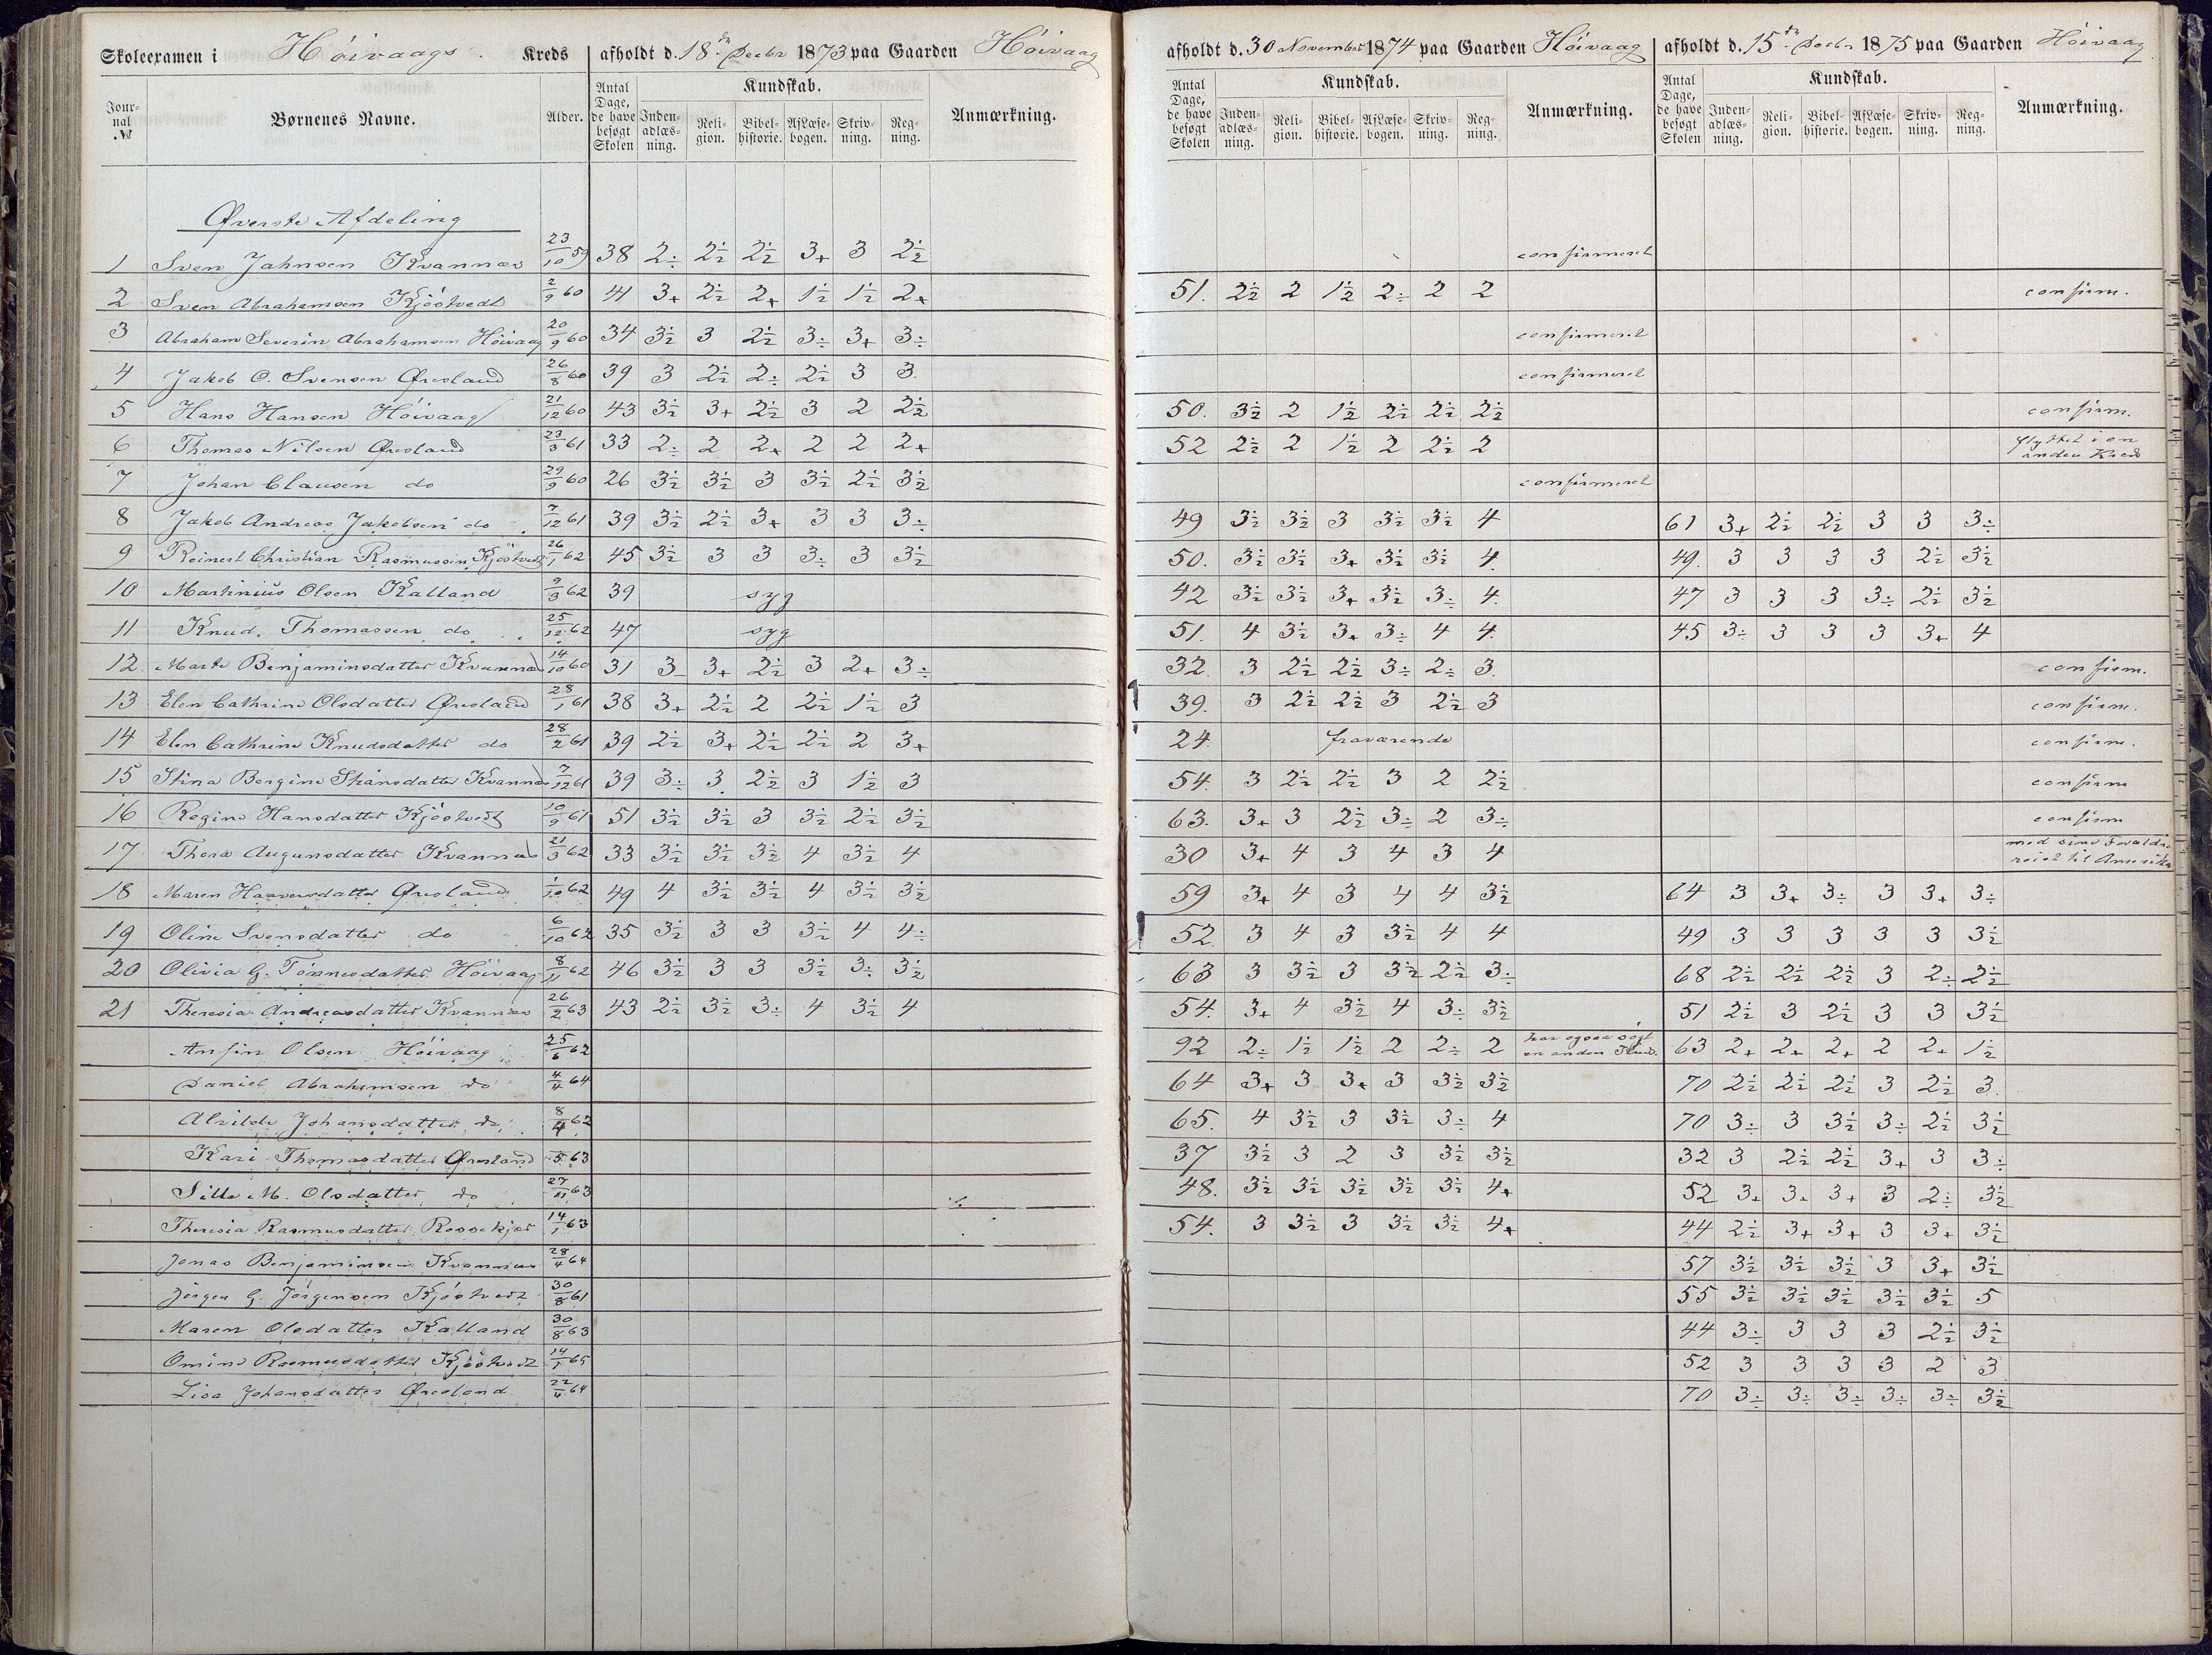 Skoleexamen i Höivaags Kreds afholdt d. 18de Decbr 1873 paa Gaarden Höivaag afholdt d. 30 November 1874 paa Gaarden Höivaag afholdt d. 15de Decbr 1875 paa Gaarden Höivaag
Jour-nal № Børnenes Navne. Alder. Antal Dage, de have besøgt Skolen Kundskab. Inden-adlæs-ning. Reli-gion. Bibel-historie. AfLæse-bogen. Skriv-ning. Reg-ning. Anmærkning. Antal Dage, de have besøgt Skolen Kundskab. Inden-adlæs-ning. Reli-gion. Bibel-historie. AfLæse-bogen. Skriv-ning. Reg-ning. Anmærkning. Antal Dage, de have besøgt Skolen Kundskab. Inden-adlæs-ning. Reli-gion. Bibel-historie. AfLæse-bogen. Skriv-ning. Reg-ning. Anmærkning.
Øverste Afdeling
1 Sven Jahnsen Kvannæs 23/10 59 38 2÷ 2½ 2½ 3+ 3 2½ confirmeret
2 Sven Abrahamsen Kjöstvedt 2/9 60 41 3+ 2½ 2+ 1½ 1½ 2+ 51. 2½ 2 1½ 2÷ 2 2 confirm.
3 Abraham Severin Abrahamsen Höivaag 20/9 60 34 3½ 3 2½ 3÷ 3+ 3÷ confirmeret
4 Jakob O. Svensen Øresland 26/8 60 39 3 2½ 2÷ 2½ 3 3. confirmeret
5 Hans Hansen Höivaag 21/12 60 43 3½ 3+ 2½ 3 2 2½ 50. 3½ 2 1½ 2½ 2½ 2½ confirm.
6 Thomas Nilsen Øresland 23/3 61 33 2÷ 2 2+ 2 2 2+ 52 2½ 2 1½ 2 2½ 2 flyttet i en anden Kreds
7 Johan Clausen do 29/9 60 26 3½ 3½ 3 3½ 2½ 3½ confirmeret
8 Jakob Andreas Jakobsen do 7/12 61 39 3½ 2½ 3+ 3 3 3÷ 49 3½ 3½ 3 3½ 3½ 4 61 3+ 2½ 2½ 3 3 3÷
9 Reinert Christian Rasmussen Kjöstvedt 26/1 62 45 3½ 3 3 3÷ 3 3½ 50. 3½ 3½ 3+ 3½ 3½ 4. 49. 3 3 3 3 2½ 3½
10 Martinius Olsen Kalland 9/3 62 39 syg 42 3½ 3½ 3+ 3½ 3÷ 4. 47 3 3 3 3÷ 2½ 3½
11 Knud. Thomassen do 25/12 62 47 syg 51. 4 3½ 3+ 3÷ 4 4. 45 3÷ 3 3 3 3+ 4
12. Marte Benjaminsdatter Kvannæs 14/10 60 31 3 3+ 2½ 3 2+ 3÷ 32. 3 2½ 2½ 3÷ 2÷ 3. confirm.
13 Elen Cathrine Olsdatter Øresland 28/1 61 38 3+ 2½ 2 2½ 1½ 3 39. 3 2½ 2½ 3 2½ 3 confirm.
14 Elen Cathrine Knudsdatter do 28/2 61 39 2½ 3+ 2½ 2½ 2 3+ 24. fraværende confirm.
15 Stina Bergine Stiansdatter Kvannæs 7/12 61 39 3÷ 3. 2½ 3 1½ 3 54. 3 2½ 2½ 3 2 2½ confirm
16 Regine Hansdatter Kjöstvedt 10/9 61 51 3½ 3½ 3 3½ 2½ 3½ 63. 3+ 3 2½ 3÷ 2 3÷ confirm
17 Thera Augunsdatter Kvannæs 21/3 62 33 3½ 3½ 3½ 4 3½ 4 30 3+ 4 3 4 3 4 med sine Forældre reist til Amerika
18 Maren Haaversdatter Øresland 1/10 62 49 4 3½ 3½ 4 3½ 3½ 59 3+ 4 3 4 4 3½ 64 3 3+ 3÷ 3 3+ 3÷
19 Oline Svensdatter do 6/10 62 35 3½ 3 3 3½ 4 4÷ 52. 3 4 3 3½ 4 4 49 3 3 3 3 3 3½
20 Olivia G. Tönnesdatter Höivaag 8/11 62 46 3½ 3 3 3½ 3÷ 3½ 63 3 3½ 3 3½ 2½ 3÷ 68 2½ 2½ 2½ 3 2÷ 2½
21 Theresia Andreasdatter Kvannæs 26/2 63 43 2½ 3½ 3÷ 4 3½ 4 54. 3+ 4 3½ 4 3÷ 3½ 51 2½ 3 2½ 3 3 3½
Anfin Olsen Höivaag 25/6 62 92 2÷ 1½ 1½ 2 2÷ 2 har ogsaa sögt en anden 63 2+ 2+ 2+ 2 2+ 1½
Daniel Abrahamsen do 4/4 64 64 3+ 3 3+ 3 3½ 3½ 70 2½ 2½ 2½ 3 2½ 3.
Alvilde Johansdatter do 8/4 62 65. 4 3½ 3 3½ 3÷ 4 70 3÷ 3 3½ 3÷ 2½ 3½
Kari Thomasdatter Øresland 5 63 37 3½ 3 2 3 3½ 3½ 32 3 2½ 2½ 3+ 3 3÷
Sille M. Olsdatter do 27/11 63 48. 3½ 3½ 3½ 3½ 3½ 4+ 52 3+ 3+ 3+ 3 2÷ 3½
Theresia Rasmusdatter Rossekjær 14/1 63 54. 3 3½ 3 3½ 3½ 4+ 44 2½ 3+ 3+ 3 3+ 3½
Jonas Benjaminsen Kvannæs 28/4 64 57 3½ 3½ 3½ 3 3+ 3½
Jörgen G. Jörgensen Kjöstvedt 30/8 61 55 3½ 3½ 3½ 3½ 3½ 5
Maren Olsdatter Kalland 30/8 63 44 3÷ 3 3 3 2½ 3½
Omine Rasmusdatter Kjöstvedt 14/1 65 52 3 3 3 3 2 3
Lisa Johansdatter Øresland 22/4 64 70 3÷ 3÷ 3÷ 3÷ 3÷ 3½